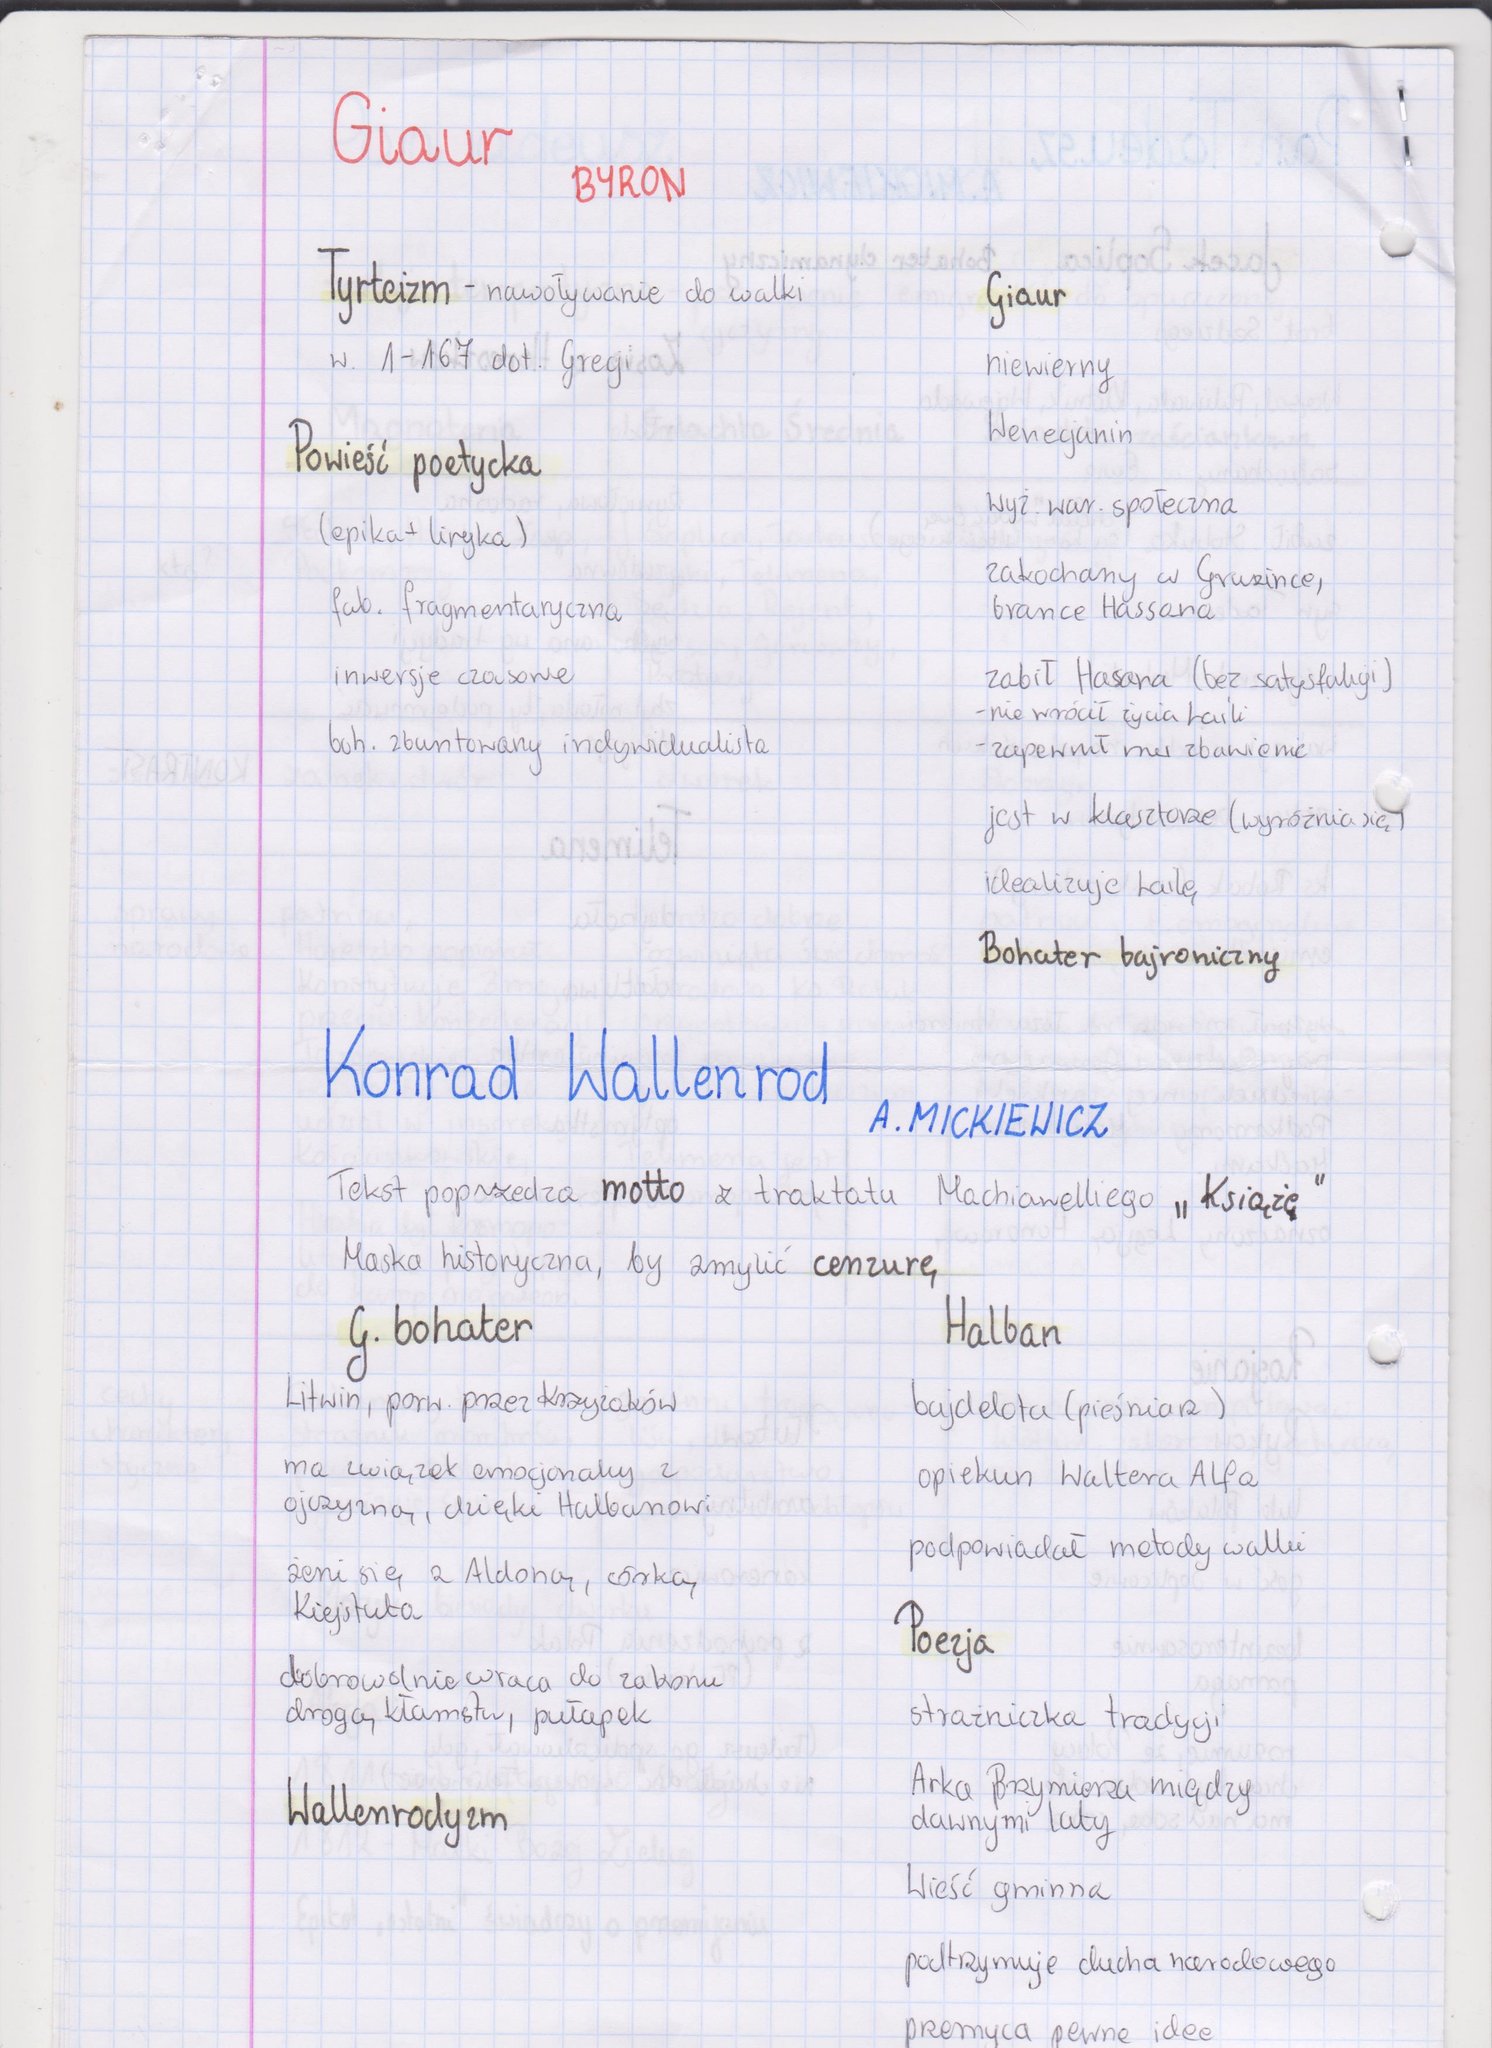 Giaur
BYRON
Tyrteizm - nawoływanie do walki
w. 1-167 dot. Grecji
Powieść poetycka
(epika + liryka)
fab. fragmentaryczna
inwersje czasowe
boh. zbuntowany indywidualista
Giaur
niewierny
Wenecjanin
wyż. war. społeczna
zakochany w Gruzince,
brance Hassana
zabił Hasana (bez satysfakcji)
-nie wrócił życia Laili
-zapewnił mu zbawienie
jest w klasztorze (wyróżnia się)
idealizuje Lailę
Bohater bajroniczny
Konrad Wallenrod
A. MICKIEWICZ
Tekst poprzedza motto z traktatu Machiawelliego „Książę"
Maska historyczna, by zmylić cenzurę
G. bohater
Litwin, porw. przez Krzyżaków
ma związek emocjonalny z
ojczyzną, dzięki Halbanowi
żeni się z Aldoną, córką
Kiejstuta
dobrowolnie wraca do zakonu
drogą kłamstw, pułapek
Wallenrodyzm
Halban
bajdelota (pieśniarz)
opiekun Waltera Alfa
podpowiadał metody walki
Poezja
strażniczka tradycji
Arka Przymierza między
dawnymi laty
Wieść gminna
podtrzymuje ducha narodowego
przemyca pewne idee